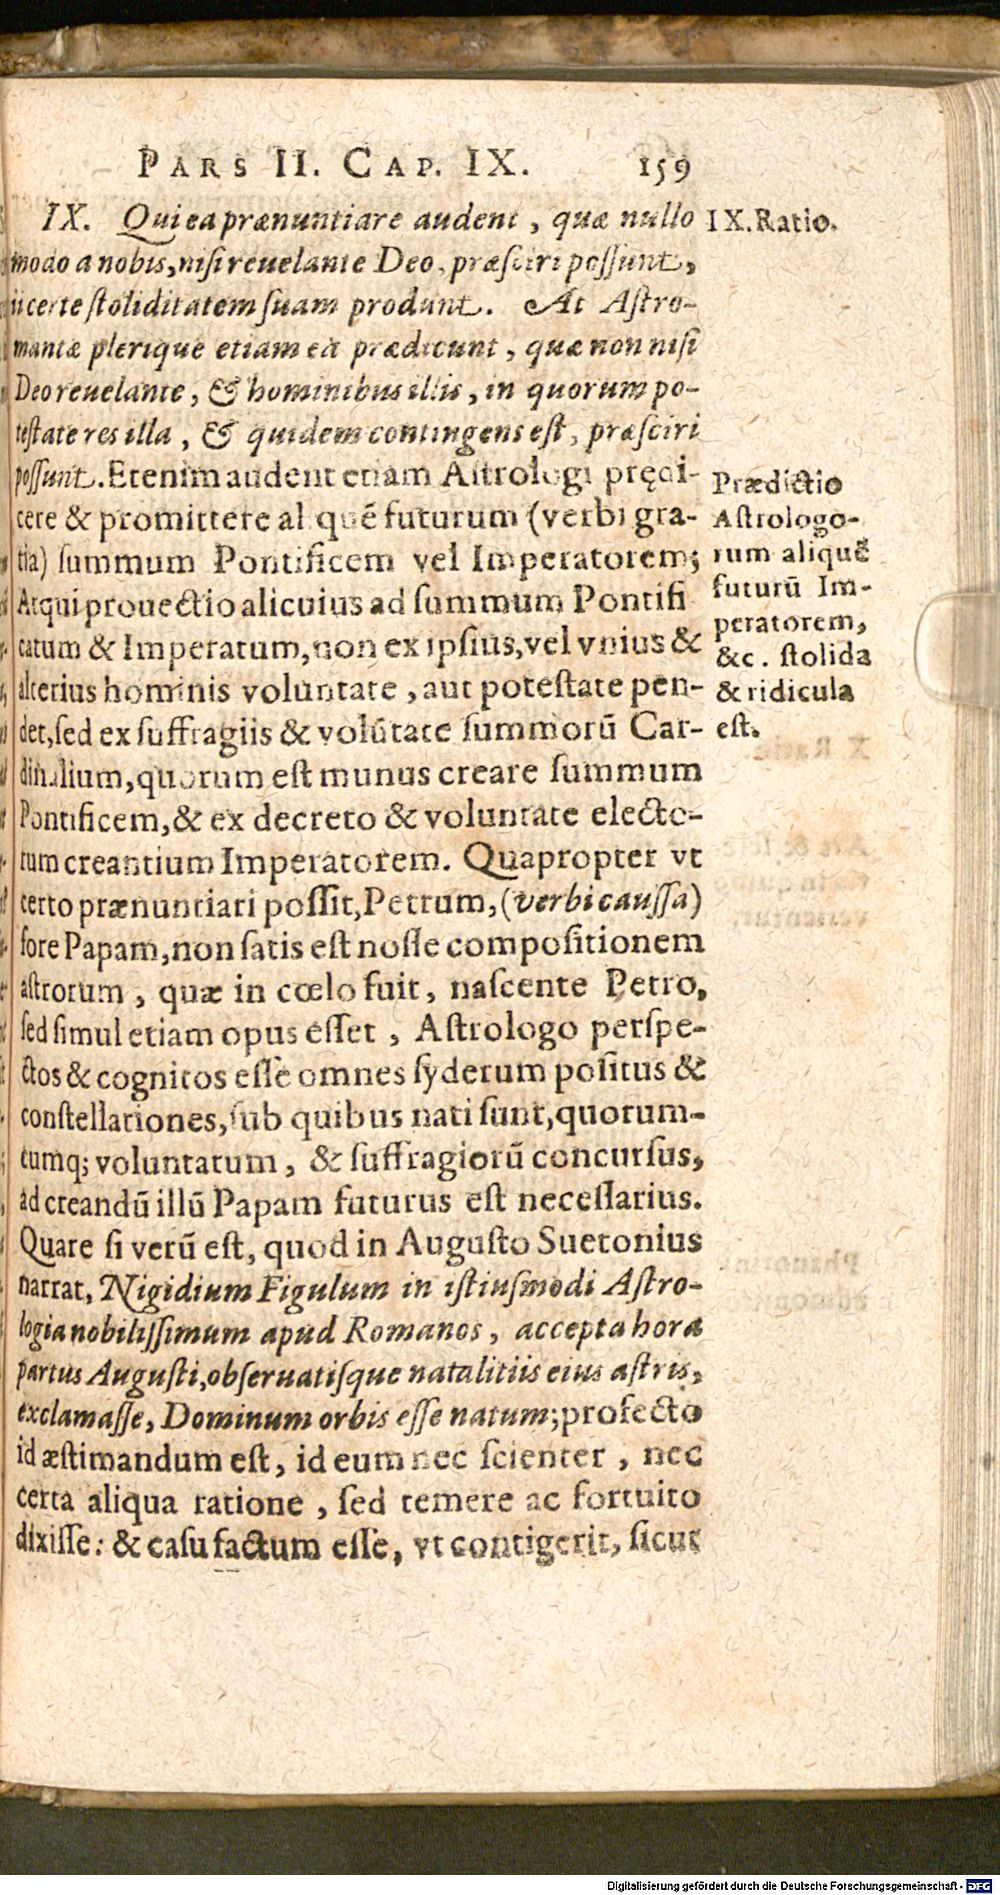 PARS II. CAP. IX. 159
IX. Qui ea prænuntiare audent, quæ nullo
modo a nobis, nisi reuelante Deo, præsciri possunt,
ii certe stoliditatem suam produnt. At Astro-
mantæ plerique etiam ea prædicunt, quæ non nisi
Deo reuelante, & hominibus illis, in quorum po-
testate res illa, & quidem contingens est, præsciri
possunt. Etenim audent etiam Astrologi prędi-
cere & promittere aliquẽ futurum (verbi gra-
tia) summum Pontificem vel Imperatorem;
Atqui prouectio alicuius ad summum Pontifi
catum & Imperatum, non ex ipsius, vel vnius &
alterius hominis voluntate, aut potestate pen-
det, sed ex suffragiis & volũtate summorũ Car-
dinalium, quorum est munus creare summum
Pontificem, & ex decreto & voluntate electo-
rum creantium Imperatorem. Quapropter vt
certo prænuntiari possit, Petrum, (verbi caussa)
fore Papam, non satis est nosse compositionem
astrorum, quæ in cœlo fuit, nascente Petro,
sed simul etiam opus esset, Astrologo perspe-
ctos & cognitos esse omnes syderum positus &
constellationes, sub quibus nati sunt, quorum-
cumq; voluntatum, & suffragiorũ concursus,
ad creandũ illũ Papam futurus est necessarius.
Quare si verũ est, quod in Augusto Suetonius
narrat, Nigidium Figulum in istiusmodi Astro-
logia nobilissimum apud Romanos, accepta hora
partus Augusti, obseruatisque natalitiis eius astris,
exclamasse, Dominum orbis esse natum; profecto
id æstimandum est, id eum nec scienter, nec
certa aliqua ratione, sed temere ac fortuito
dixisse: & casu factum esse, vt contigerit, sicut
IX. Ratio.
Prædictio
Astrologo-
rum aliquẽ
futurũ Im-
peratorem,
&c. stolida
& ridicula
est.
Digitalisierung gefördert durch die Deutsche Forschungsgemeinschaft - DFG